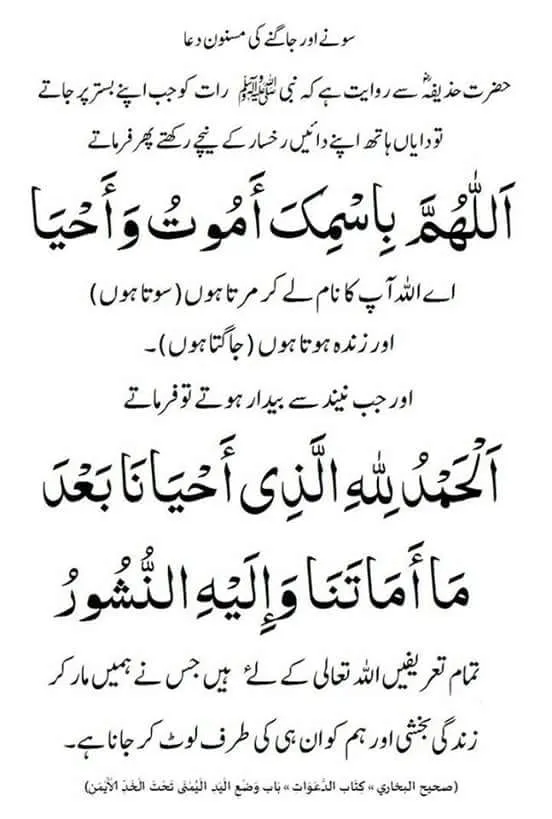 سونے اور جاگنے کی مسنون دعا
حضرت حذیفہؓ سے روایت ہے کہ نبی ﷺ رات کو جب اپنے بستر پر جاتے
تو دایاں ہاتھ اپنے دائیں رخسار کے نیچے رکھتے پھر فرماتے
اَللّٰهُمَّ بِاسْمِکَ أَمُوتُ وَأَحْیَا
اے اللہ آپ کا نام لے کر مرتا ہوں (سوتا ہوں)
اور زندہ ہوتا ہوں (جاگتا ہوں)۔
اور جب نیند سے بیدار ہوتے تو فرماتے
اَلْحَمْدُ لِلّٰهِ الَّذِی أَحْیَانَا بَعْدَ
مَا أَمَاتَنَا وَإِلَیْهِ النُّشُورُ
تمام تعریفیں اللہ تعالی کے لئے ہیں جس نے ہمیں مار کر
زندگی بخشی اور ہم کو ان ہی کی طرف لوٹ کر جانا ہے۔
(صحيح البخاري » كِتَاب الدَّعَوَات » بَاب وَضْعِ الْيَدِ الْيُمْنَى تَحْتَ الْخَدِّ الْأَيْمَنِ)